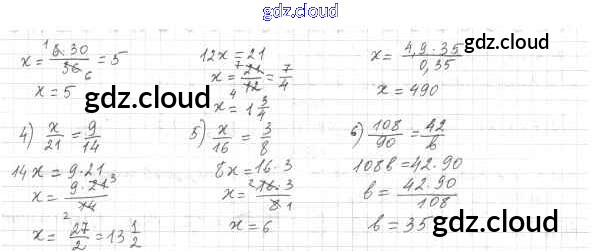 gdz.cloud
x = 6·30/36 = 5
x = 5
12x = 21
x = 21/12 = 7/4
x = 1 3/4
x = 4,9·35/0,35
x = 490
gdz.cloud
gdz.cloud
4) x/21 = 9/14
14x = 9·21
x = 9·21/14
x = 27/2 = 13 1/2
5) x/16 = 3/8
8x = 16·3
x = 16·3/8
x = 6
6) 108/90 = 42/b
108b = 42·90
b = 42·90/108
b = 35
gdz.cloud
gdz.cloud